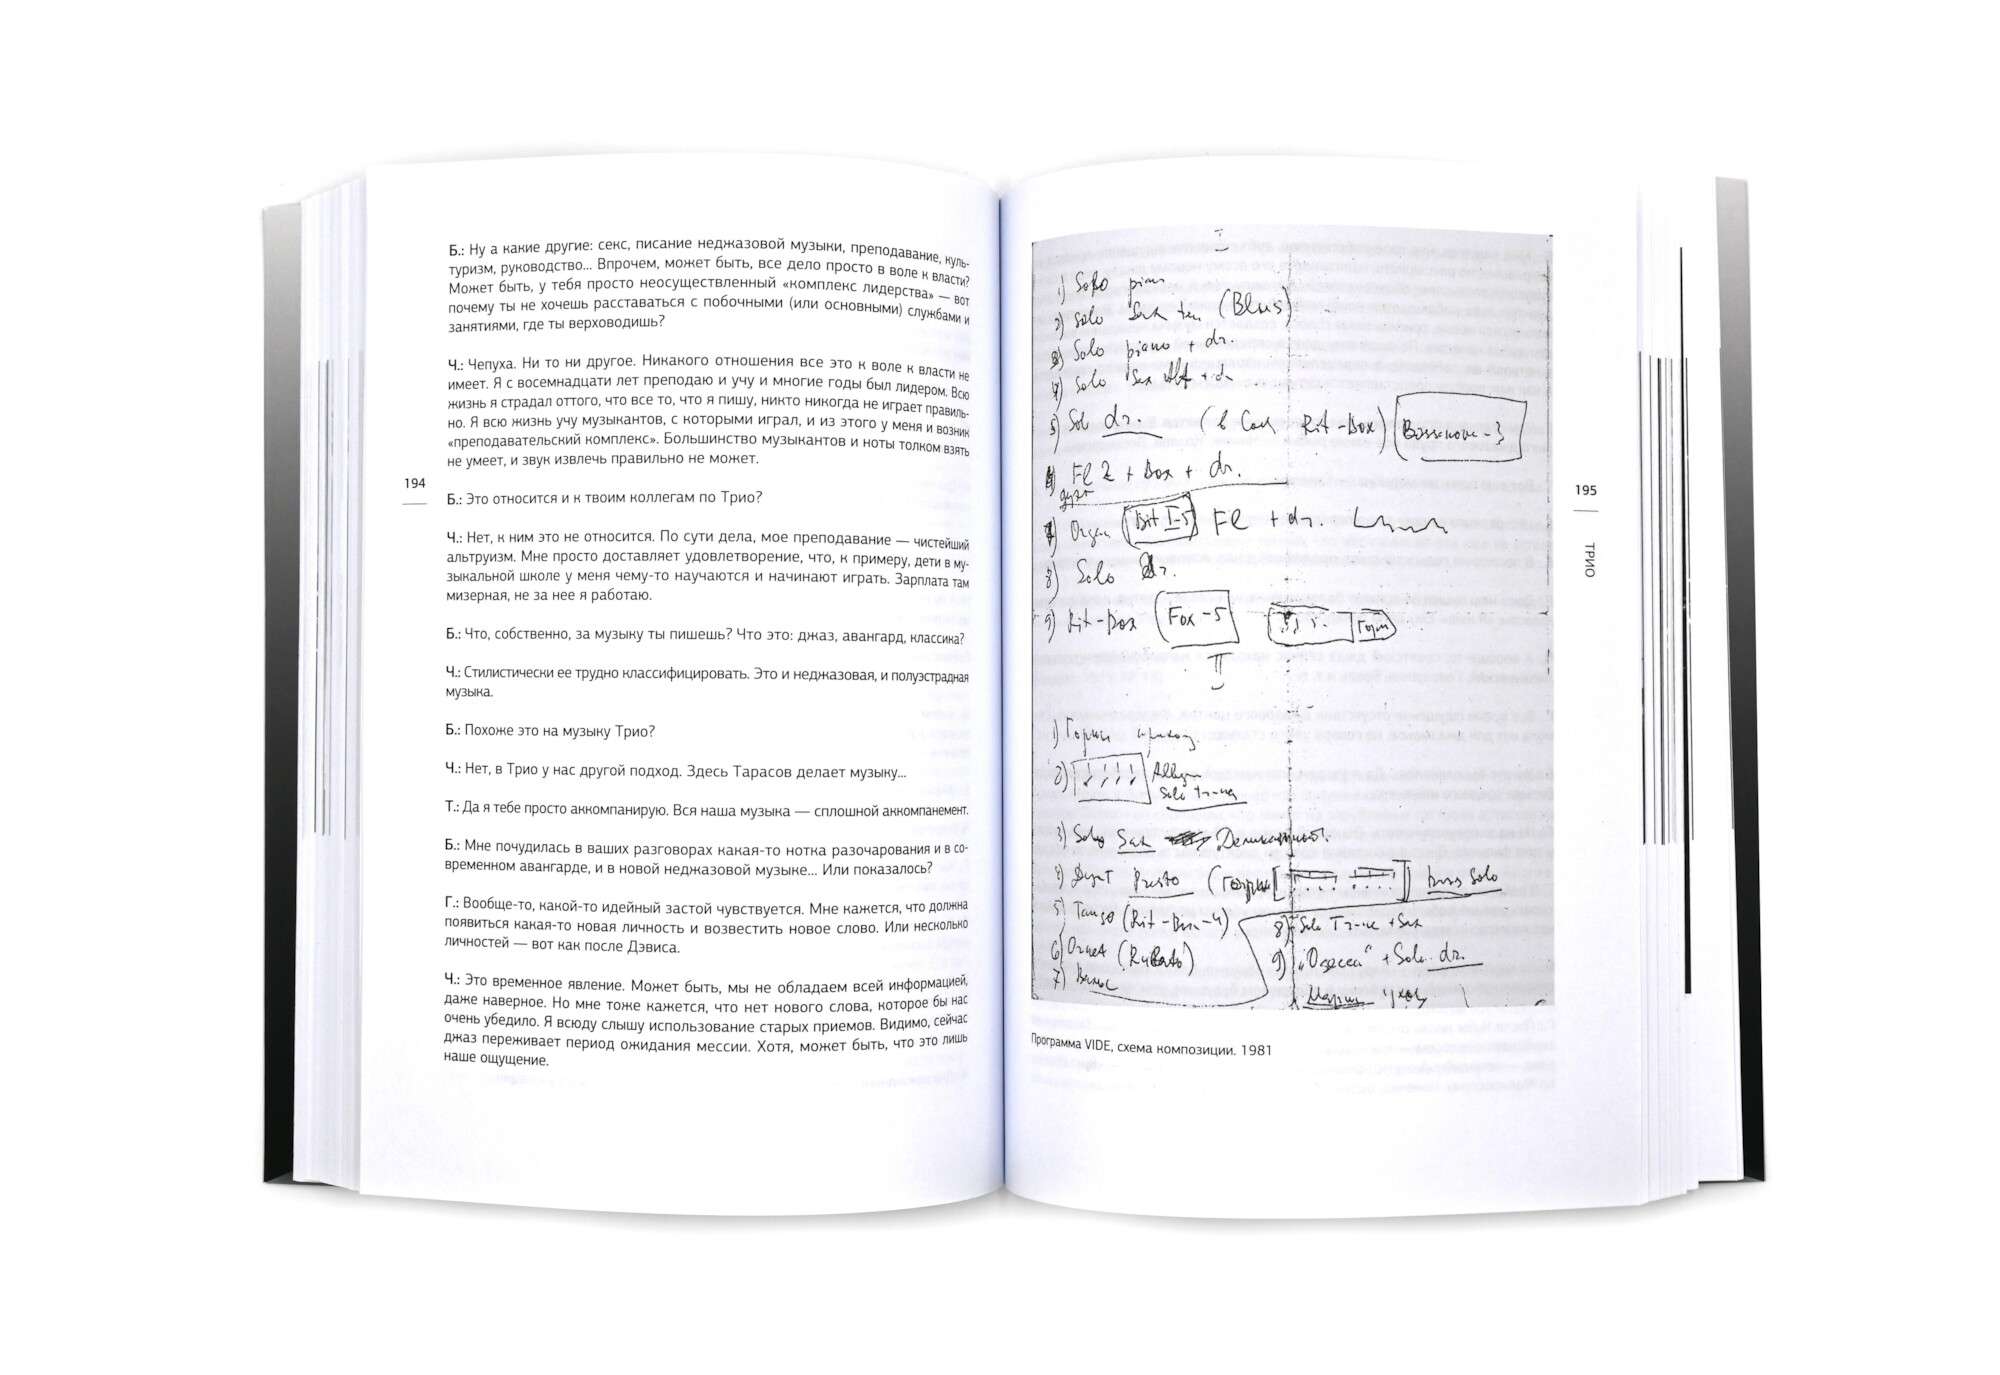 Б.: Ну а какие другие: секс, писание неджазовой музыки, преподавание, куль-
туризм, руководство... Впрочем, может быть, все дело просто в воле к власти?
Может быть, у тебя просто неосуществленный «комплекс лидерства» — вот
почему ты не хочешь расставаться с побочными (или основными) службами и
занятиями, где ты верховодишь?
Ч.: Чепуха. Ни то ни другое. Никакого отношения все это к воле к власти не
имеет. Я с восемнадцати лет преподаю и учу и многие годы был лидером. Всю
жизнь я страдал оттого, что все то, что я пишу, никто никогда не играет правиль-
но. Я всю жизнь учу музыкантов, с которыми играл, и из этого у меня и возник
«преподавательский комплекс». Большинство музыкантов и ноты толком взять
не умеет, и звук извлечь правильно не может.
194
Б.: Это относится и к твоим коллегам по Трио?
Ч.: Нет, к ним это не относится. По сути дела, мое преподавание — чистейший
альтруизм. Мне просто доставляет удовлетворение, что, к примеру, дети в му-
зыкальной школе у меня чему-то научаются и начинают играть. Зарплата там
мизерная, не за нее я работаю.
Б.: Что, собственно, за музыку ты пишешь? Что это: джаз, авангард, классика?
Ч.: Стилистически ее трудно классифицировать. Это и неджазовая, и полуэстрадная
музыка.
Б.: Похоже это на музыку Трио?
Ч.: Нет, в Трио у нас другой подход. Здесь Тарасов делает музыку...
Т.: Да я тебе просто аккомпанирую. Вся наша музыка — сплошной аккомпанемент.
Б.: Мне почудилась в ваших разговорах какая-то нотка разочарования и в со-
временном авангарде, и в новой неджазовой музыке... Или показалось?
Г.: Вообще-то, какой-то идейный застой чувствуется. Мне кажется, что должна
появиться какая-то новая личность и возвестить новое слово. Или несколько
личностей — вот как после Дэвиса.
Ч.: Это временное явление. Может быть, мы не обладаем всей информацией,
даже наверное. Но мне тоже кажется, что нет нового слова, которое бы нас
очень убедило. Я всюду слышу использование старых приемов. Видимо, сейчас
джаз переживает период ожидания мессии. Хотя, может быть, что это лишь
наше ощущение.
I
1) Solo
2) Solo Sax ten (Blus)
3) Solo piano + dr.
4) Solo Sax Alt + dr
5) Solo dr. Rit-Box)
Fl 2 + Box + dr.
дуэт
Organ Fl + dr.
8) Solo dr.
9) Rit-Box Fox-5
II
1)
2)
Solo
3) Solo Sax
4) Дуэт Presto Solo
5) Tango (Rit-Box-4)
6) Ornet (Rubato)
7) Вальс
8) Solo + Sax
9) „Одесса“ + Solo dr.
Программа VIDE, схема композиции. 1981
195
ТРИО